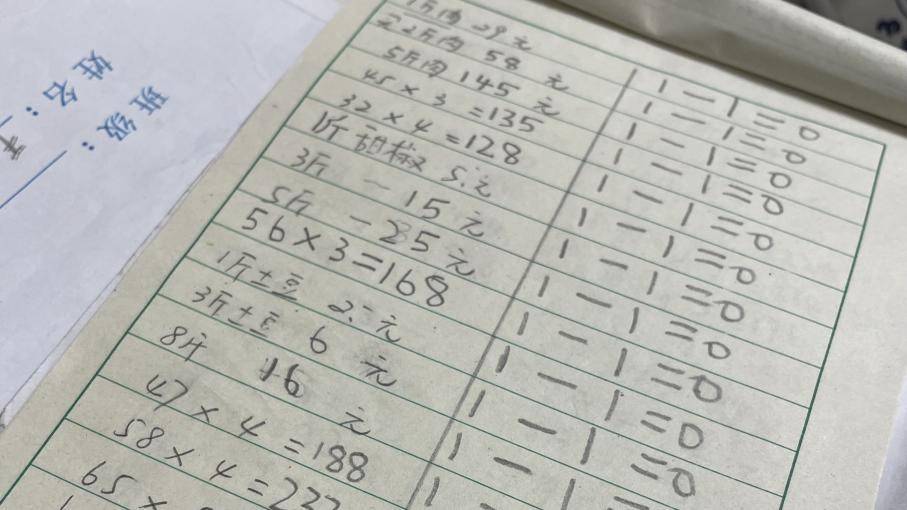 班级：
姓名：
1斤肉 29元
买2斤肉 58 元
5斤肉 145 元
45 × 3 =135
32 × 4 =128
1斤胡椒 5元
3斤 — 15 元
5斤 — 25 元
56×3=168
1斤土豆 2元
3斤土豆 6 元
8斤 16 元
47 × 4 =188
58 × 4 =232
65 ×
1－1=0
1－1=0
1－1=0
1－1=0
1－1=0
1－1=0
1－1=0
1－1=0
1－1=0
1－1=0
1－1=0
1－1=
1－